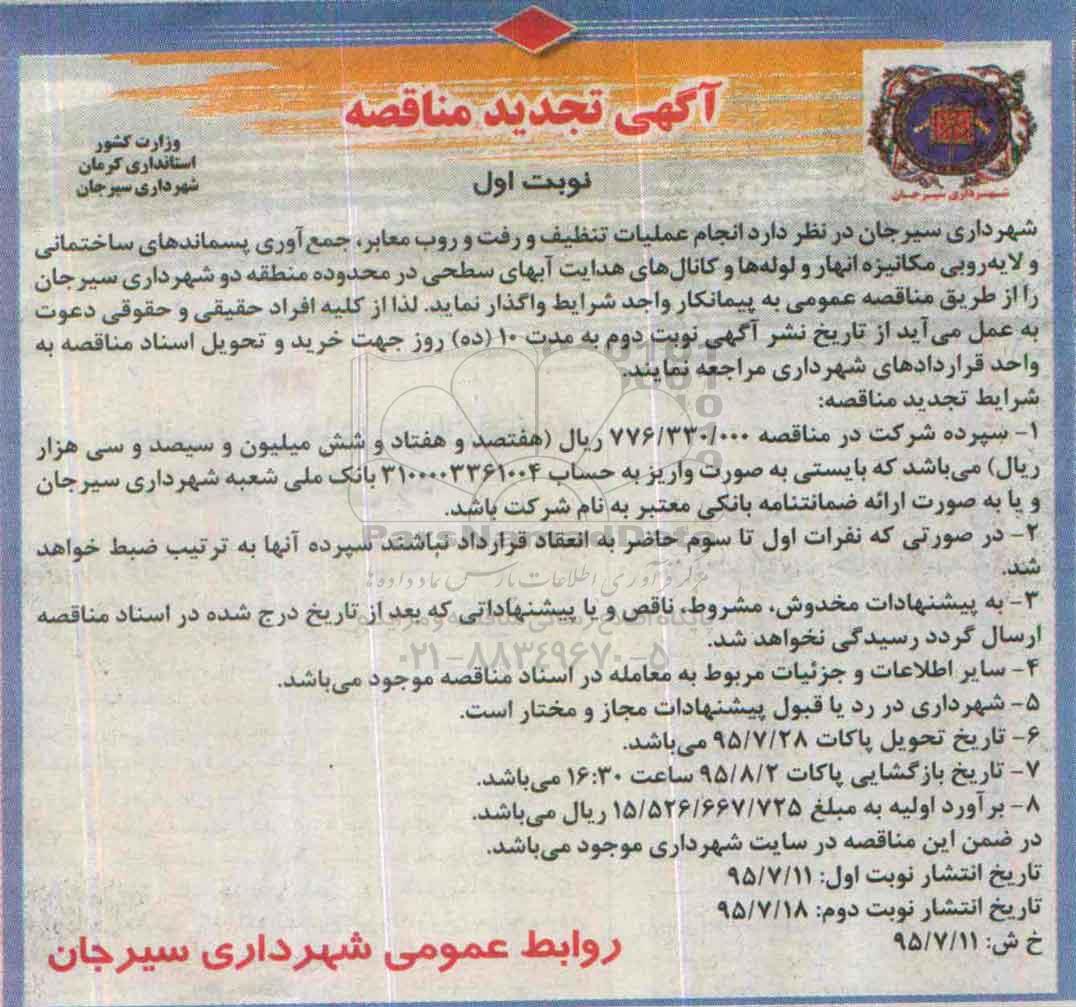 آگهی تجدید مناقصه
نوبت اول
وزارت کشور
استانداری کرمان
شهرداری سیرجان
شهرداری سیرجان
شهرداری سیرجان در نظر دارد انجام عملیات تنظیف و رفت و روب معابر، جمع‌آوری پسماندهای ساختمانی
و لایه‌روبی مکانیزه انهار و لوله‌ها و کانال‌های هدایت آبهای سطحی در محدوده منطقه دو شهرداری سیرجان
را از طریق مناقصه عمومی به پیمانکار واجد شرایط واگذار نماید. لذا از کلیه افراد حقیقی و حقوقی دعوت
به عمل می‌آید از تاریخ نشر آگهی نوبت دوم به مدت ۱۰ (ده) روز جهت خرید و تحویل اسناد مناقصه به
واحد قراردادهای شهرداری مراجعه نمایند.
شرایط تجدید مناقصه:
۱- سپرده شرکت در مناقصه ۷۷۶/۳۳۰/۰۰۰ ریال (هفتصد و هفتاد و شش میلیون و سیصد و سی هزار
ریال) می‌باشد که بایستی به صورت واریز به حساب ۳۱۰۰۰۰۳۳۶۱۰۰۴ بانک ملی شعبه شهرداری سیرجان
و یا به صورت ارائه ضمانتنامه بانکی معتبر به نام شرکت باشد.
۲- در صورتی که نفرات اول تا سوم حاضر به انعقاد قرارداد نباشند سپرده آنها به ترتیب ضبط خواهد
شد.
۳- به پیشنهادات مخدوش، مشروط، ناقص و یا پیشنهاداتی که بعد از تاریخ درج شده در اسناد مناقصه
ارسال گردد رسیدگی نخواهد شد.
۴- سایر اطلاعات و جزئیات مربوط به معامله در اسناد مناقصه موجود می‌باشد.
۵- شهرداری در رد یا قبول پیشنهادات مجاز و مختار است.
۶- تاریخ تحویل پاکات ۹۵/۷/۲۸ می‌باشد.
۷- تاریخ بازگشایی پاکات ۹۵/۸/۲ ساعت ۱۶:۳۰ می‌باشد.
۸- برآورد اولیه به مبلغ ۱۵/۵۲۶/۶۶۷/۷۲۵ ریال می‌باشد.
در ضمن این مناقصه در سایت شهرداری موجود می‌باشد.
تاریخ انتشار نوبت اول: ۹۵/۷/۱۱
تاریخ انتشار نوبت دوم: ۹۵/۷/۱۸
خ ش: ۹۵/۷/۱۱
روابط عمومی شهرداری سیرجان
۰۲۱-۸۸۳۴۹۶۷۰-۵